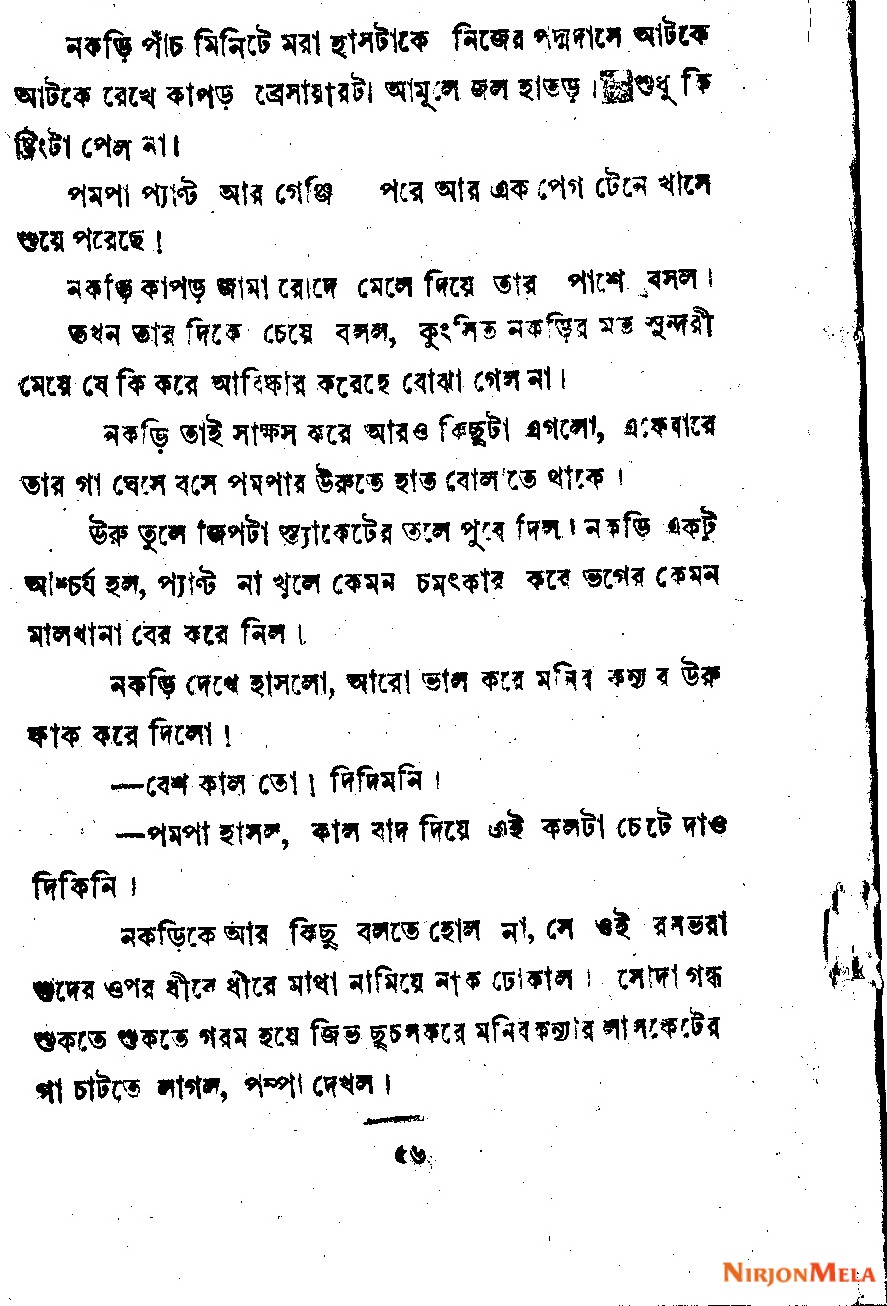 নকড়ি পাঁচ মিনিটে মরা হাসটাকে নিজের পদ্মদাসে আটকে
আটকে রেখে কাপড় ব্রেসায়ারটা আমূলে জল হাতড়। শুধু কি
ষ্ট্রিংটা পেল না।
পমপা প্যাণ্ট আর গেঞ্জি পরে আর এক পেগ টেনে খাসে
শুয়ে পরেছে!
নকড়ি কাপড় জামা রোদে মেলে দিয়ে তার পাশে বসল।
তখন তার দিকে চেয়ে বলল, কুৎসিত নকড়ির মত সুন্দরী
মেয়ে যে কি করে আবিষ্কার করেছে বোঝা গেল না।
নকড়ি তাই সাক্ষস করে আরও কিছুটা এগলো, একেবারে
তার গা ঘেসে বসে পমপার উরুতে হাত বোলাতে থাকে।
উরু তুলে জিপটা স্ল্যাকেটের তলে পুরে দিল। নকড়ি একটু
আশ্চর্য হল, প্যাণ্ট না খুলে কেমন চমৎকার করে ভগের কেমন
মালখানা বের করে নিল।
নকড়ি দেখে হাসলো, আরো ভাল করে মনিব কন্যার উরু
ফাক করে দিলো!
—বেশ কাল তো। দিদিমনি।
—পমপা হাসল, কাল বাদ দিয়ে এই কলটা চেটে দাও
দিকিনি।
নকড়িকে আর কিছু বলতে হোল না, সে ওই রসভরা
গুদের ওপর ধীরে ধীরে মাথা নামিয়ে নাক ঢোকাল। সোদা গন্ধ
শুকতে শুকতে গরম হয়ে জিভ ছুচলকরে মনিবকন্যার লাসকেটের
গা চাটতে লাগল, পম্পা দেখল।
৫৬
NIRJONMELA